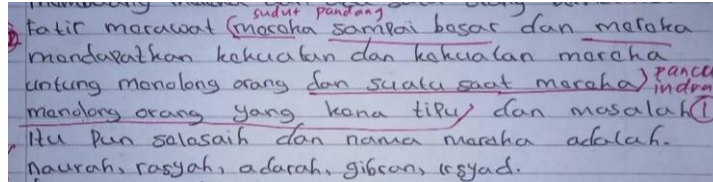 sudut pandang
fatir merawat (mereka sampai besar dan mereka
mendapatkan kekuatan dan kekuatan mereka
untung menolong orang dan suatu saat mereha) panca indra
menolong orang yang kena tipu) dan masalah ①
itu pun selesaih dan nama mereka adalah.
naurah, rasyah, adarah, gibran, irsyad.